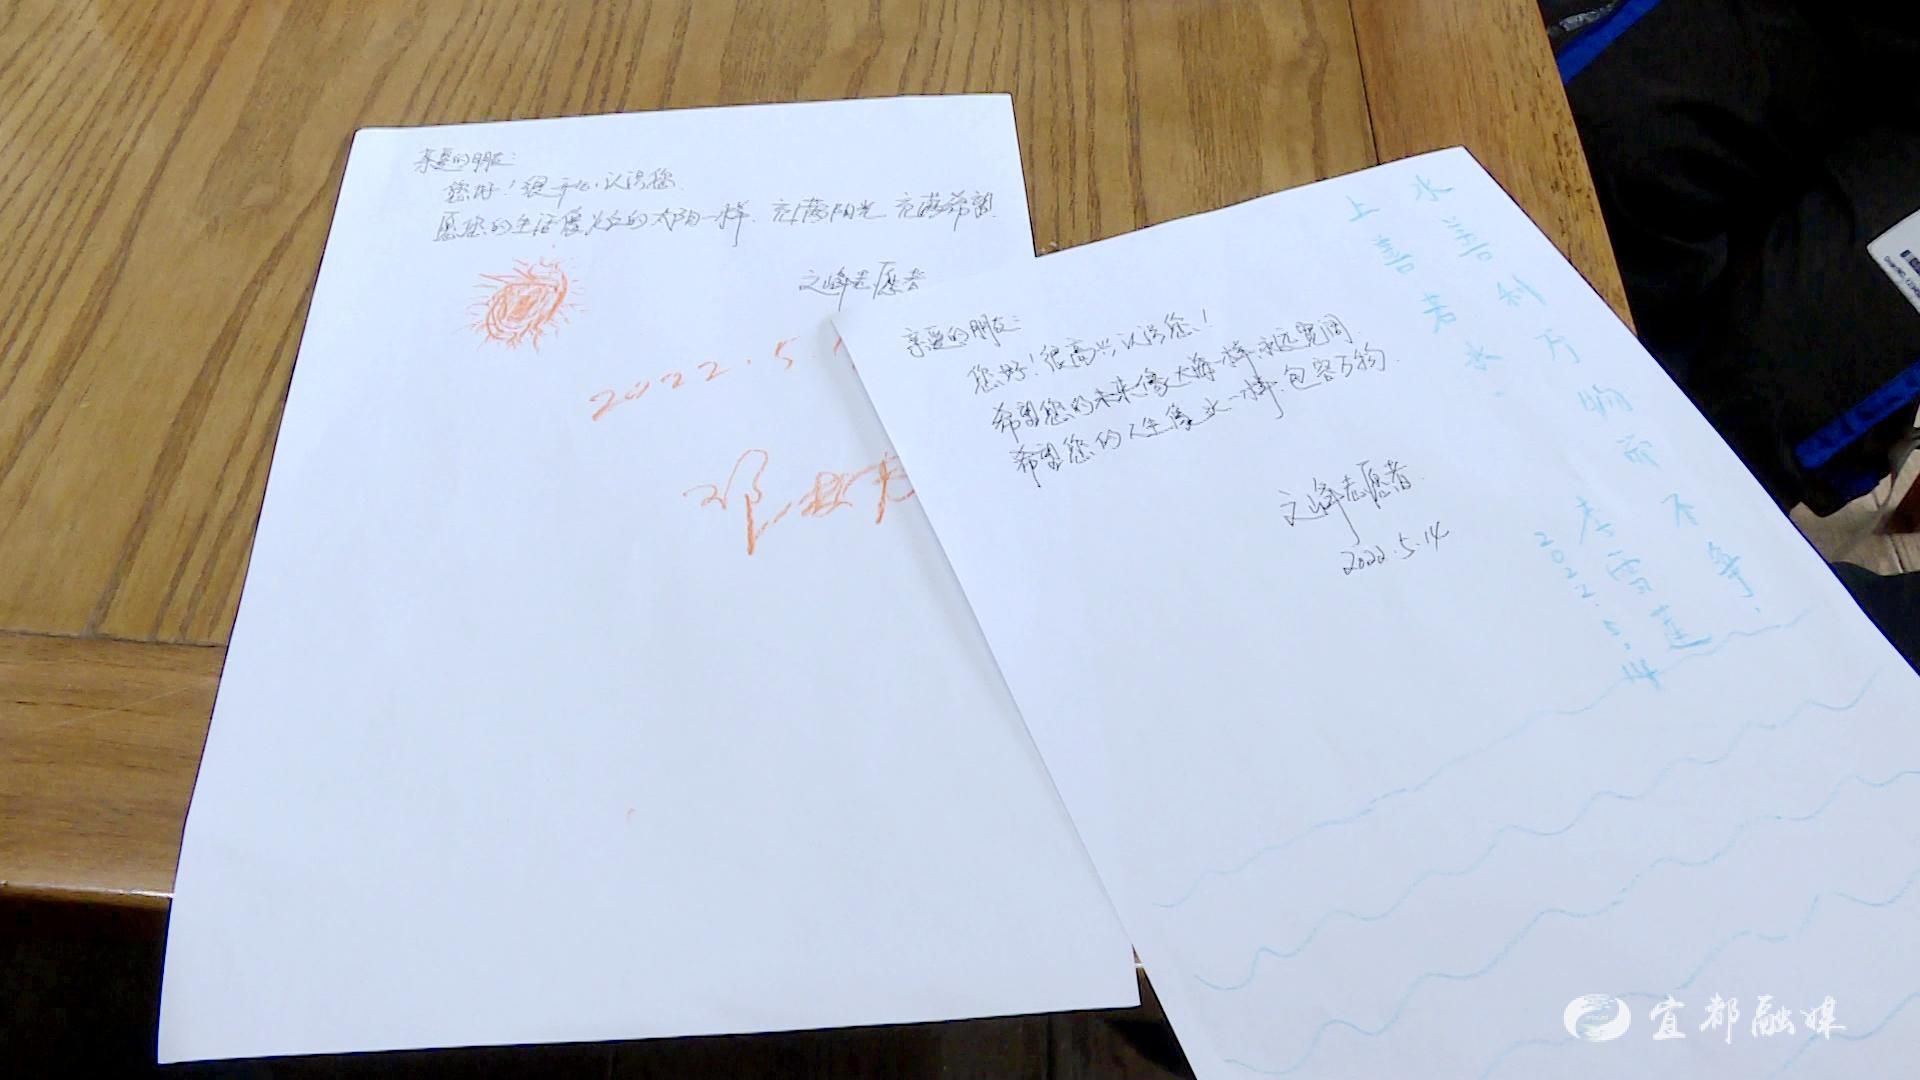 亲爱的朋友:
您好!很开心认识您.
愿您的生活像火红的太阳一样、充满阳光、充满希望.
文峰志愿者
2022.5.
邓
亲爱的朋友:
您好!很高兴认识您!
希望您的未来像大海一样永远宽阔.
希望您的人生像水一样、包容万物.
文峰志愿者
2022.5.14
上善若水.
水善利万物而不争.
李雪莲
2022.5.14
宜都融媒